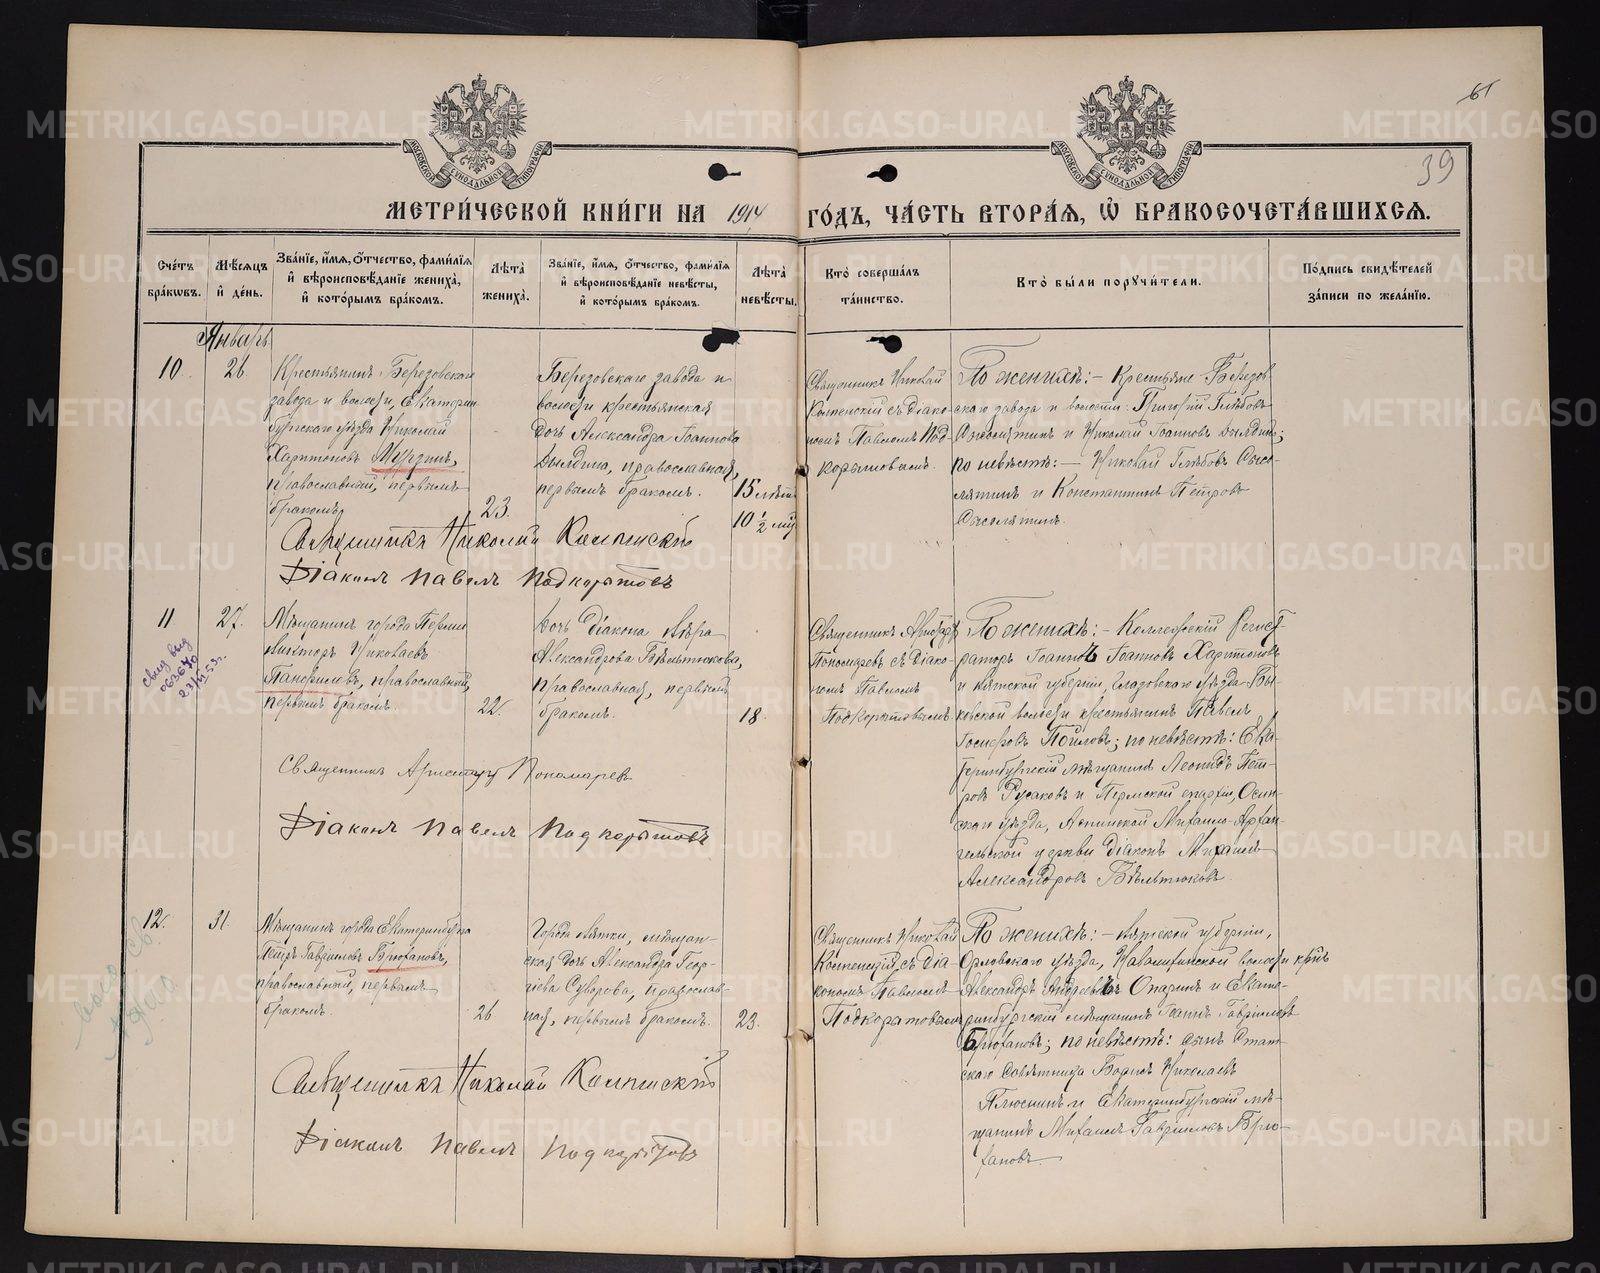 МЕТРИ́ЧЕСКОЙ КНИ́ГИ НА 1914 ГО́ДЪ, ЧА́СТЬ ВТОРА́Я, Ѡ҆ БРАКОСОЧЕТА́ВШИХСЯ.
39
Сче́тъ бра́кѡвъ.
Мѣ́сяцъ и҆ де́нь.
Зва́нїе, и҆́мя, ѻ҆́тчество, фами́лїя и҆ вѣроисповѣ́данїе жениха̀, и҆ кото́рымъ бра́комъ.
Лѣта̀ жениха̀.
Зва́нїе, и҆́мя, ѻ҆́тчество, фами́лїя и҆ вѣроисповѣ́данїе невѣ́сты, и҆ кото́рымъ бра́комъ.
Лѣта̀ невѣ́сты.
Кто̀ соверша́лъ та́инство.
Кто̀ бы́ли поручи́тели.
По́дпись свидѣ́телей за́писи по жела́нїю.
Январь
10.
26.
Крестьянинъ Березовскаго
завода и волости, Екатерин
бургскаго уѣзда Николай
Харитоновъ Мурзинъ,
православный, первымъ
бракомъ.
23.
Березовскаго завода и
волости крестьянская
дочь Александра Іоаннова
Вылдина, православная,
первымъ бракомъ.
15 лѣтъ
10 ½ мц
Священникъ Николай
съ діако-
номъ Павломъ Под-
корытовымъ.
По женихѣ: – Крестьяне Березов-
скаго завода и волости: Григорій Глѣбовъ
Сысолятинъ и Николай Іоанновъ Вылдинъ;
по невѣстѣ: – Николай Глѣбовъ Сысо-
лятинъ и Константинъ Петровъ
Сысолятинъ.
Священникъ Николай
Діаконъ Павелъ Подкорытовъ
11
27.
Мѣщанинъ города Перми
Викторъ Николаевъ
Панфиловъ, православный,
первымъ бракомъ.
22.
Дочь діакона Вѣра
Александрова Бѣльтюкова,
православная, первымъ
бракомъ.
18.
Священникъ Аристархъ
Пономаревъ съ діако-
номъ Павломъ
Подкорытовымъ
По женихѣ: – Коллежскій Регист
раторъ Іоаннъ Іоанновъ Харитоновъ
и Вятской губерніи, Глазовскаго уѣзда
волости крестьянинъ Павелъ
по невѣстѣ: Ека-
теринбургскій мѣщанинъ Леонидъ Пет-
ровъ Русаковъ и Пермской епархіи, Осин-
скаго уѣзда, Аспинской Михаило-Архан-
гельской церкви діаконъ Михаилъ
Александровъ Бѣльтюковъ.
Священникъ Аристархъ Пономаревъ
Діаконъ Павелъ Подкорытовъ
12.
31.
Мѣщанинъ города Екатеринбурга
Петръ Гавриловъ Брюхановъ,
православный, первымъ
бракомъ.
26
Города Вятки, мѣщан-
ская дочь Александра Геор-
гіева Суворова, православ-
ная, первымъ бракомъ.
23.
Священникъ Николай
съ діа
кономъ Павломъ
Подкорытовымъ
По женихѣ: – Вятской губерніи,
Орловскаго уѣзда, волости кр‑нъ
Александръ Андреевъ Опаринъ и Екате-
ринбургскій мѣщанинъ Іоаннъ Гавриловъ
Брюхановъ; по невѣстѣ: сынъ Стат-
скаго Совѣтника Борисъ Николаевъ
Плюснинъ и Екатеринбургскій мѣ-
щанинъ Михаилъ Гавриловъ Брю-
хановъ.
Священникъ Николай
Діаконъ Павелъ Подкорытовъ
METRIKI.GASO-URAL.RU